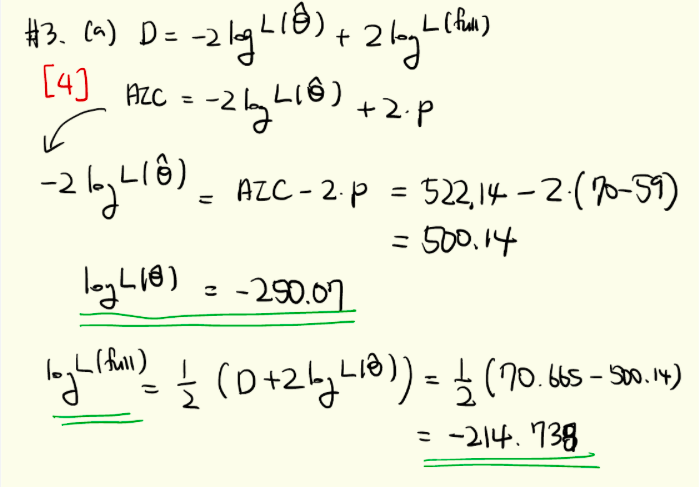 #3. (a) D = -2 log L(θ̂) + 2 log L(full)
[4] AIC = -2 log L(θ̂) + 2·p
-2 log L(θ̂) = AIC - 2·p = 522.14 - 2·(70-59)
= 500.14
log L(θ) = -250.07
log L(full) = 1/2 (D + 2 log L(θ̂)) = 1/2 (70.665 - 500.14)
= -214.738